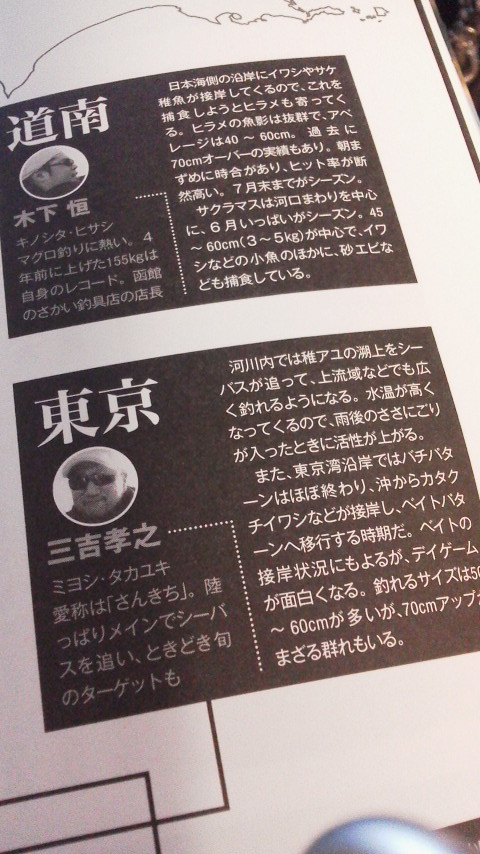 道南
木下 恒
キノシタ・ヒサシ
マグロ釣りに熱い。4
年前に上げた155kgは
自身のレコード。函館
のさかい釣具店の店長
日本海側の沿岸にイワシやサケ
稚魚が接岸してくるので、これを
捕食しようとヒラメも寄ってく
る。ヒラメの魚影は抜群で、アベ
レージは40～60cm。過去に
70cmオーバーの実績もあり。朝ま
ずめに時合があり、ヒット率が断
然高い。7月末までがシーズン。
サクラマスは河口まわりを中心
に、6月いっぱいがシーズン。45
～60cm(3～5kg)が中心で、イワ
シなどの小魚のほかに、砂エビな
ども捕食している。
東京
三吉孝之
ミヨシ・タカユキ
愛称は「さんきち」。陸
っぱりメインでシーバ
スを追い、ときどき旬
のターゲットも
河川内では稚アユの溯上をシー
バスが追って、上流域などでも広
く釣れるようになる。水温が高く
なってくるので、雨後のささにごり
が入ったときに活性が上がる。
また、東京湾沿岸ではバチパタ
ーンはほぼ終わり、沖からカタク
チイワシなどが接岸し、ベイトパタ
ーンへ移行する時期だ。ベイトの
接岸状況にもよるが、デイゲーム
が面白くなる。釣れるサイズは50
～60cmが多いが、70cmアップが
まざる群れもいる。